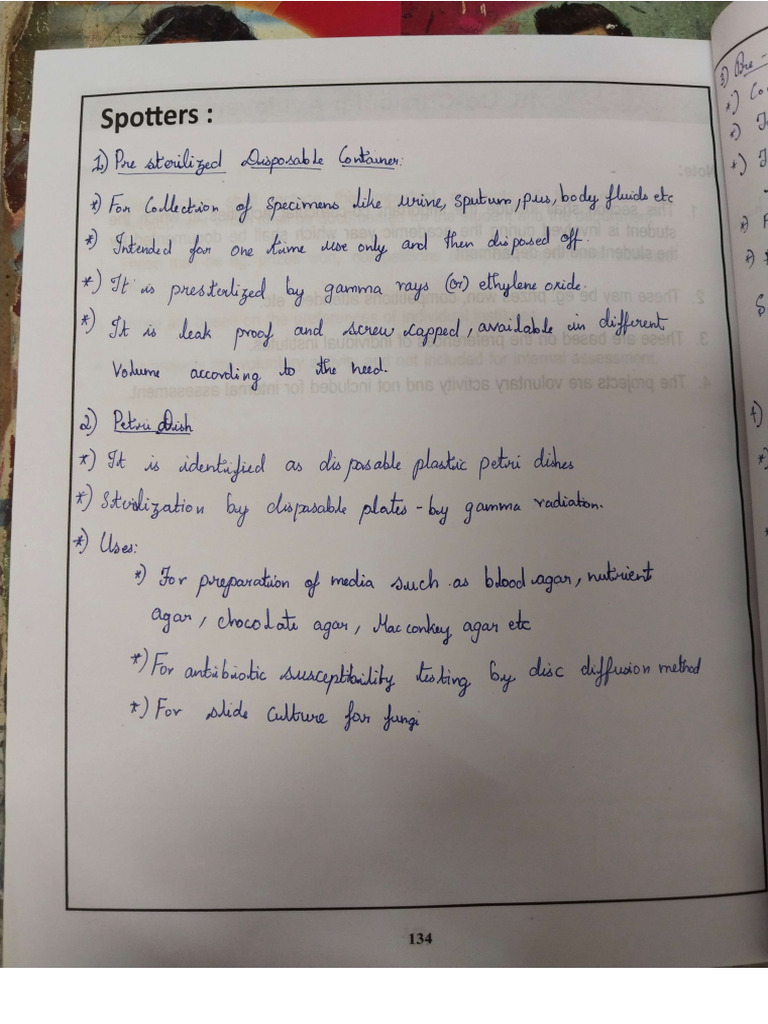 Spotters :
1) Pre sterilized Disposable Container:
*) For Collection of specimens like urine, sputum, pus, body fluids etc
*) Intended for one time use only and then disposed off.
*) It is presterlized by gamma rays (or) ethylene oxide.
*) It is leak proof and screw capped, available in different
Volume according to the need.
2) Petri Dish
*) It is identified as disposable plastic petri dishes
*) Sterilization by disposable plates - by gamma radiation.
*) Uses:
*) For preparation of media such as blood agar, nutrient
agar, chocolate agar, Mac conkey agar etc
*) For antibiotic susceptibility testing by disc diffusion method
*) For slide culture for fungi
134
3) Pre -